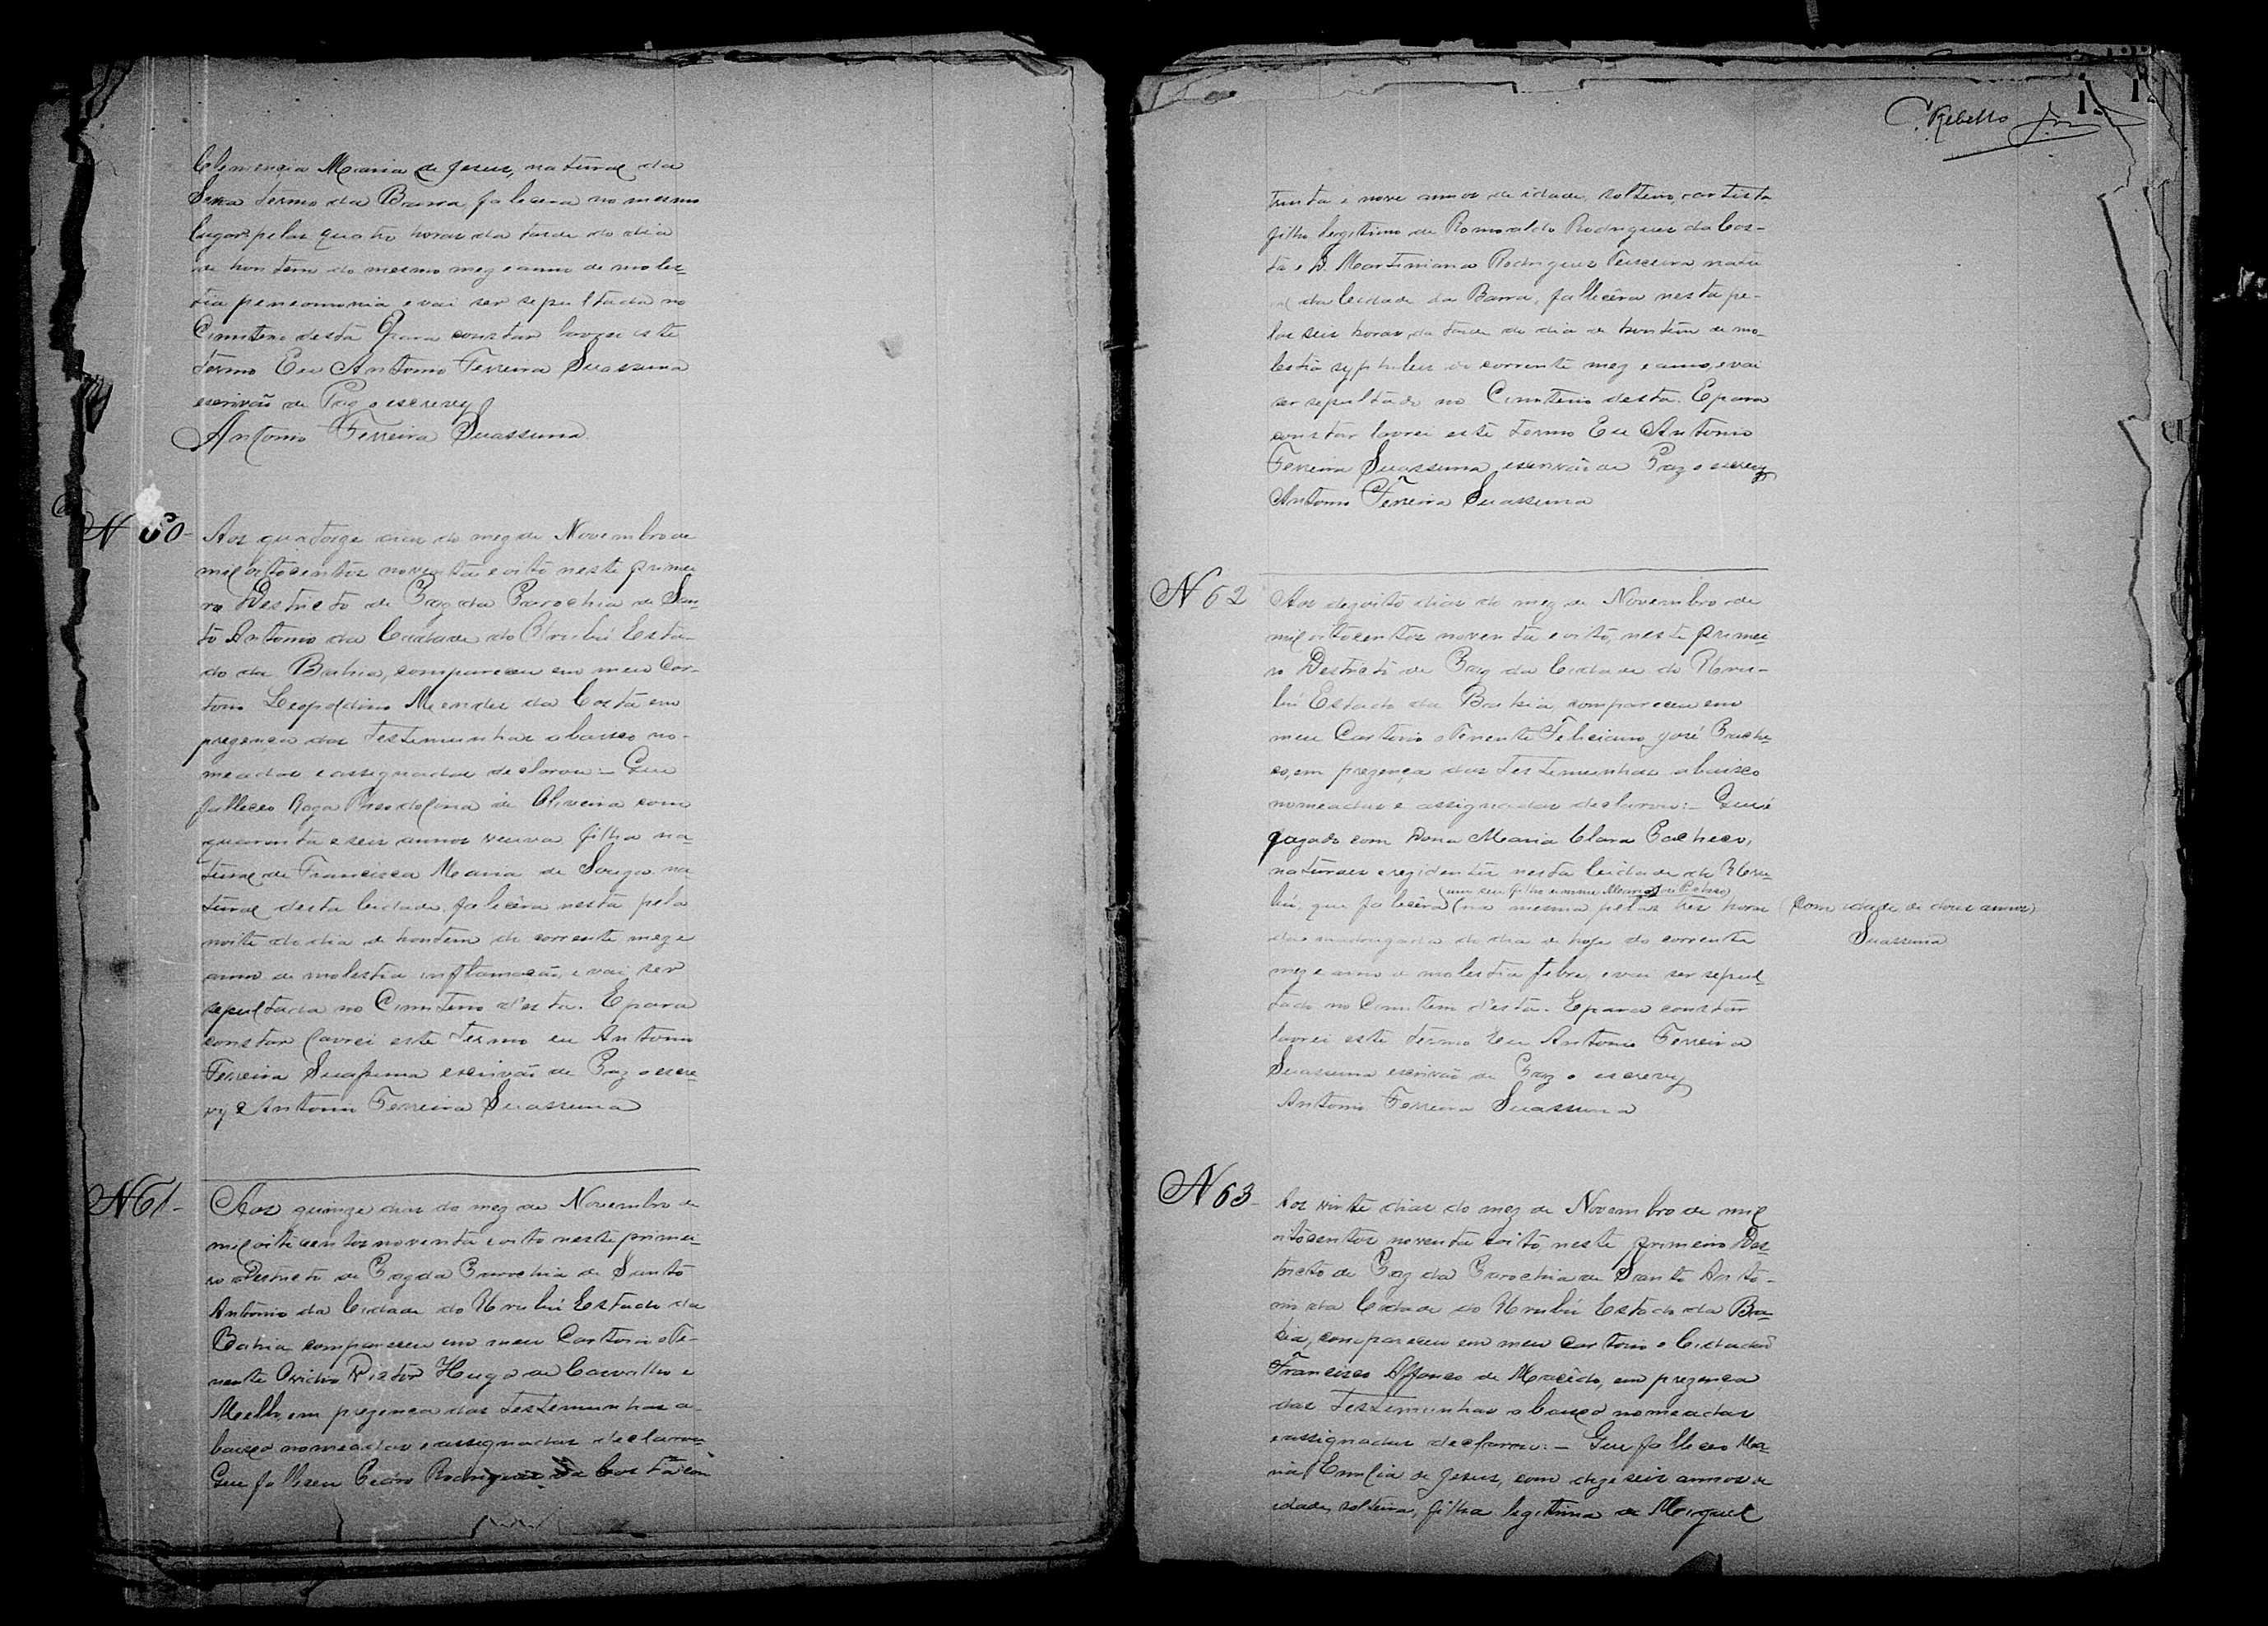 Clemencia Maria de Jesus, natural da
Serra termo da Barra falecera no mesmo
lugar pelas quatro horas da tarde do dia
de hontem do mesmo mez e anno de moles-
tia peneomonia e vai ser sepultada no
Cimiterio desta E para constar lavrei este
termo Eu Antonio Ferreira Suassuna
escrivão de Paz o escrevy
Antonio Ferreira Suassuna
N 60- Aos quatorze dias do mez de Novembro de
mil oitocentos noventa e oito neste primei
ro Destricto de Paz da Parochia de San-
to Antonio da Cidade do Urubú Esta-
do da Bahia, compareceu em meu Car-
torio Leopoldino Mendes da Costa em
prezenca das testemunhas abaixo no-
meadas e assignadas declarou:- Que
falleceo Roza de Oliveira com
quarenta e seis annos viuva filha na-
tural de Francisca Maria de Souza na
tural desta Cidade, falecêra nesta pela
noite do dia de hontem do corrente mez e
anno de molestia inflamacão, e vai ser
sepultada no Cimiterio d'esta. E para
constar lavrei este termo eu Antonio
Ferreira Suassuna escrivão de Paz o escre-
vy Antonio Ferreira Suassuna
N 61- Aos quinze dias do mez de Novembro de
mil oitocentos noventa e oito neste primei-
ro Destricto de Paz da Parochia de Santo
Antonio da Cidade do Urubú Estado da
Bahia compareceu em meu Cartorio o Te-
nente Ovidio Victor Hugo de Carvalho e
Mello, em prezenca das testemunhas a-
baixo nomeadas e assignadas declarou
Que falleceu Pedro Rodrigues da Costa com
C. Rebello
trinta e nove annos de idade, solteiro, artista
filho legitimo de Romoaldo Rodrigues da Cos-
ta e D. Martiniana Rodrigues Teixeira natu
ral da Cidade da Barra, fallecêra nesta pe-
las seis horas da tarde do dia de hontem de mo-
lestia syphiles do corrente mez e anno, e vai
ser sepultado no Cimiterio desta. E para
constar lavrei este termo Eu Antonio
Ferreira Suassuna escrivão de Paz o escrevy
Antonio Ferreira Suassuna
N 62 Aos dezoito dias do mez de Novembro de
mil oitocentos noventa e oito, neste primei-
ro Destricto de Paz da Cidade do Uru-
bú Estado da Bahia, compareceu em
meu Cartorio o Tenente Feliciano José Pache-
co, em prezença das testemunhas abaixo
nomeadas e assignadas declarou:- Que é
cazado com Dona Maria Clara Pacheco,
naturaes e rezidentes nesta Cidade do Uru-
(um seu filho e nome Pacheco)
bú, que falecêra (na mesma pelas tres horas (Com idade de dous annos)
da madrugada do dia de hoje do corrente Suassuna
mez e anno de molestia febre, e vai ser sepul-
tado no Cimiterio d'esta. E para constar
lavrei este termo Eu Antonio Ferreira
Suassuna escrivão de Paz o escrevy
Antonio Ferreira Suassuna
N 63- Aos vinte dias do mez de Novembro de mil
oitocentos noventa e oito, neste primeiro Des-
tricto de Paz da Parochia de Santo Anto-
nio da Cidade do Urubú Estado da Ba-
hia, compareceu em meu Cartorio o Cidadão
Francisco Affonco de Macêdo, em prezença
das testemunhas abaixo nomeadas
e assignadas declarou:- Que falleceo Ma-
ria Emilia de Jesus, com dezeseis annos de
idade, solteira, filha legitima de Miguel